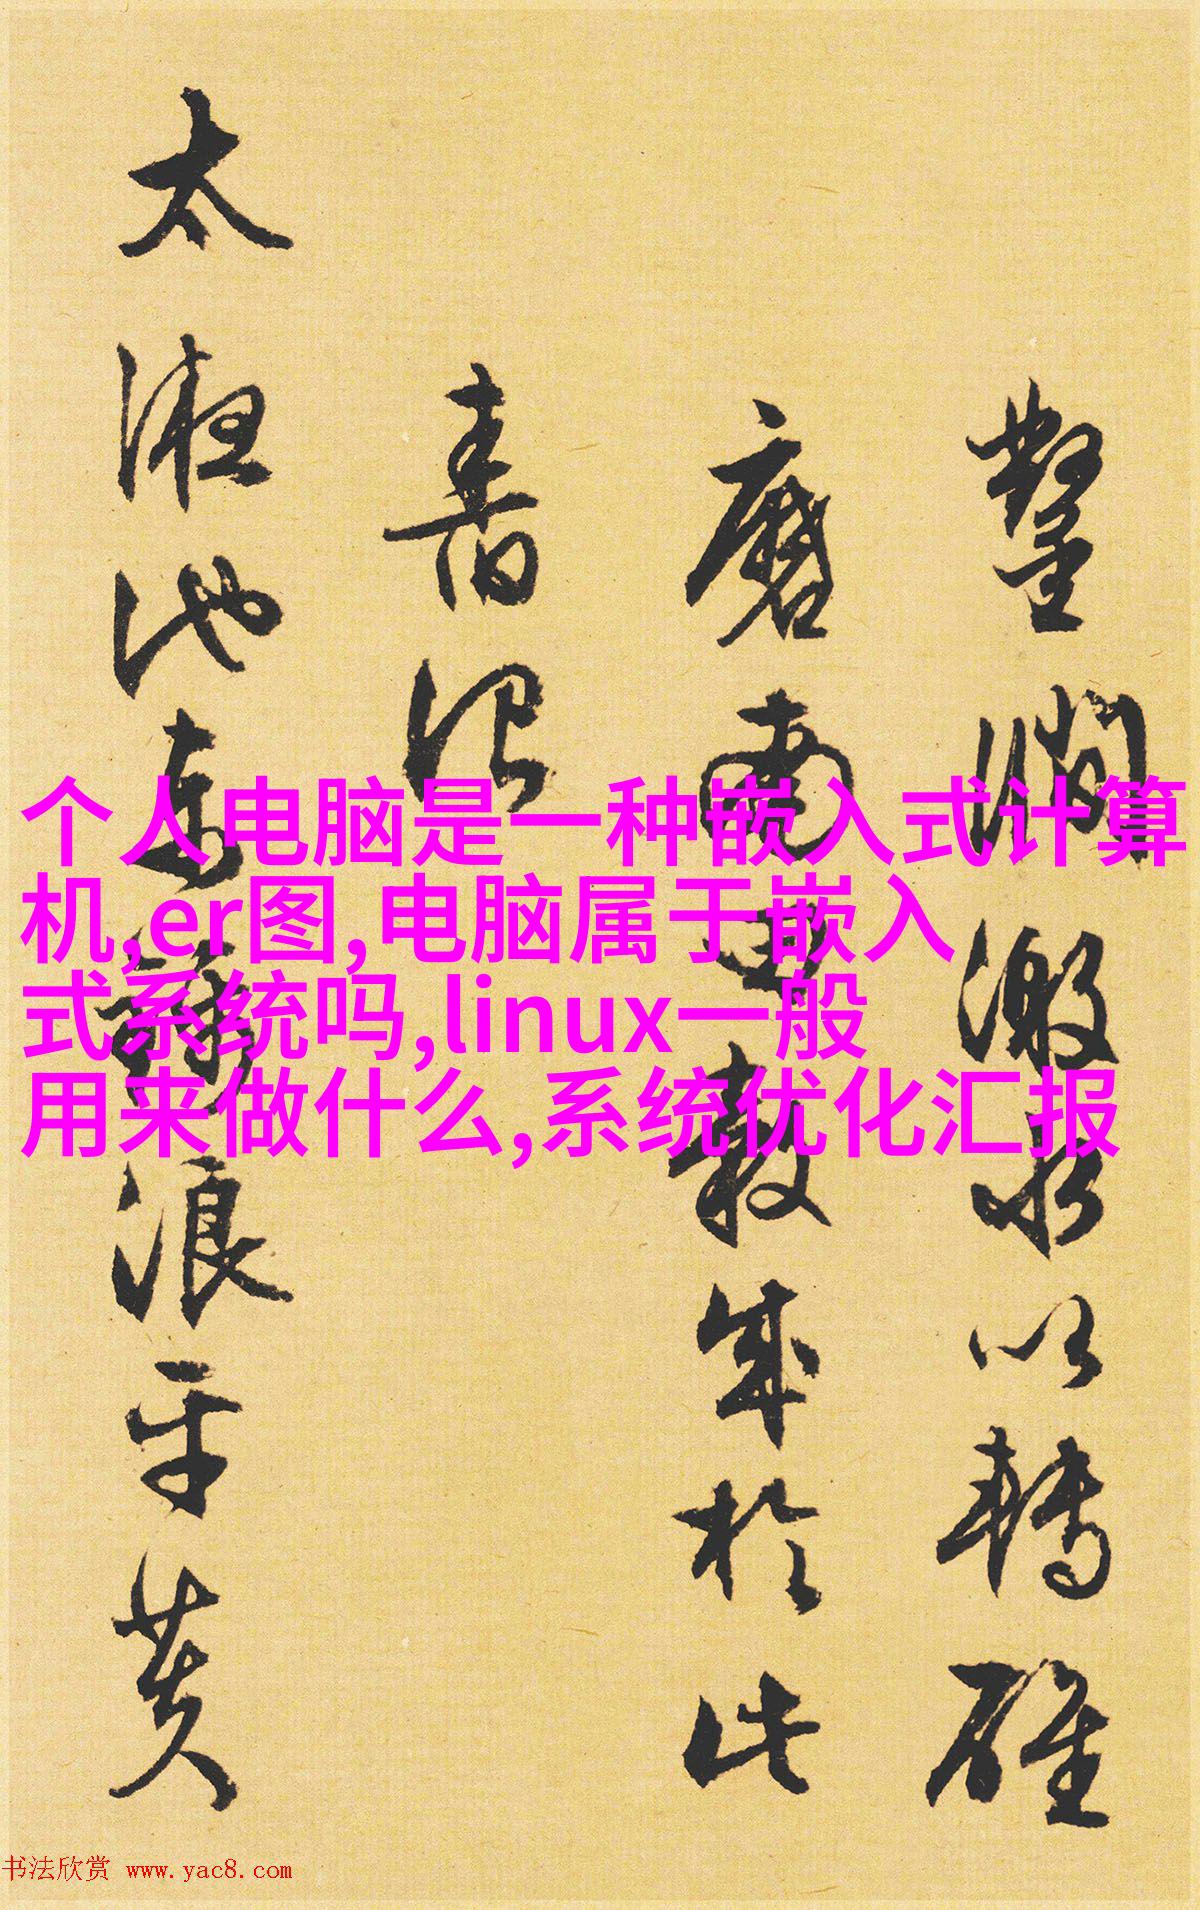 鑿澗激水以轉碓
磨南
敖成於此
嘉泥
太液池
浪平黄
个人电脑是一种嵌入式计算
机,er图,电脑属于嵌入
式系统吗,linux一般
用来做什么,系统优化汇报
书法欣赏 www.yac8.com